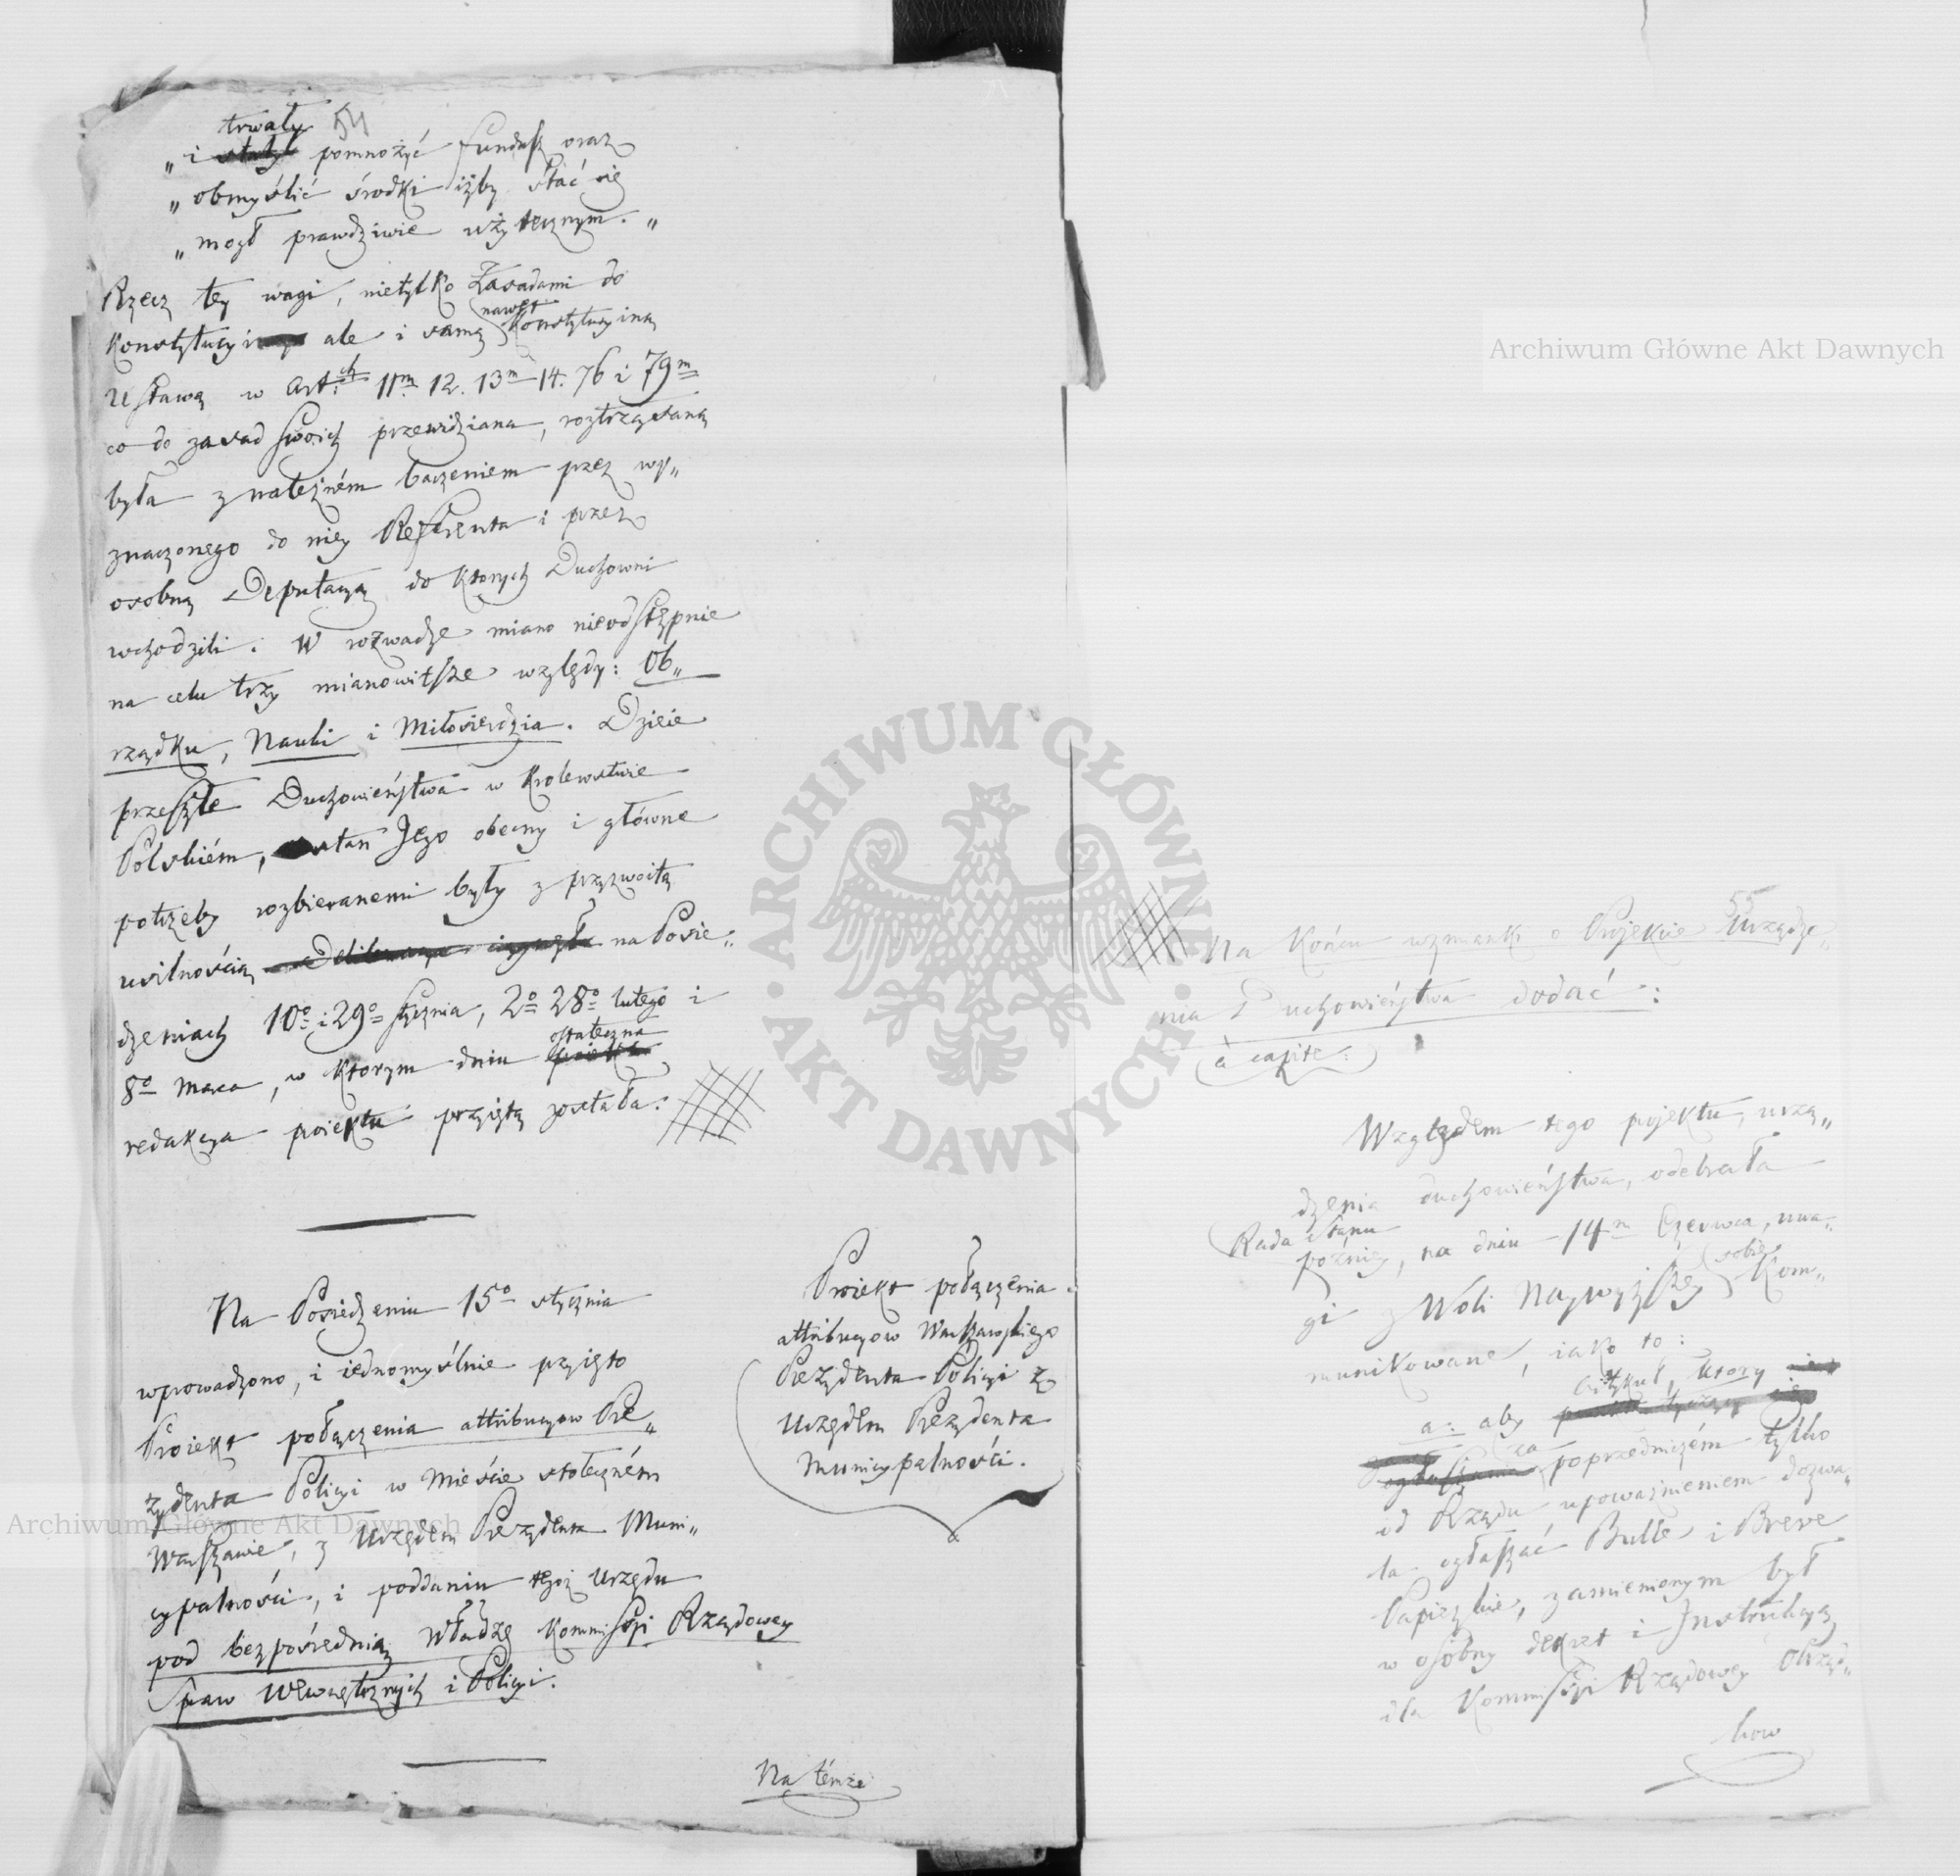 54
trwały
„ i stały pomnożyć fundusz oraz
„ obmyślić środki iżby stać się
„ mogł prawdziwie użytecznym. „
Rzecz tey wagi, nietylko Zasadami do
Konstytucyi ale i samą nawet Konstytucyiną
Ustawą w Art. 11m 12. 13m 14. 76 i 79m
co do zasad swoich przewidziana, roztrząsaną
była z należném baczeniem przez wy„
znaczonego do niey Referenta i przez
osobną Deputacyą do ktorych Duchowni
wchodzili. W rozwadze miano nieodstępnie
na celu trzy mianowitsze względy: Ob„
rządku, Nauki i Miłosierdzia. Dzieie
przeszłe Duchowieństwa w Krolewstwie
Polskiém, stan Jego obecny i główne
potrzeby rozbieranemi były z przyzwoitą
usilnością na Posie„
dzeniach 10o i 29o stycznia, 2o 28o lutego i
8o Marca, w ktorym dniu ostateczna
redakcya proiektu przyiętą została.
Na Posiedzeniu 15o stycznia
wprowadzono, i iednomyślnie przyięto
Proiekt połączenia attribucyow Pre„
zydenta Policyi w Mieście stołeczném
Warszawie, z Urzędem Prezydenta Muni„
cypalności, i poddaniu tegoż Urzędu
pod bezpośrednią Władzę Kommissyi Rządowey
Spraw Wewnętrznych i Policyi.
Proiekt połączenia
attribucyow Warszawskiego
Prezydenta Policyi z
Urzędem Prezydenta
Municypalności.
Na témże
55
Na Końcu wzmianki o Projekcie Urządze„
nia Duchowieństwa dodać:
à capite:
Względem tego projektu, urzą„
dzenia duchowieństwa, odebrała
Rada Stanu
poźniey, na dniu 14m Czerwca, uwa„
gi z Woli Naywyższey sobie Kom„
munikowane, iako to:
a: aby artykuł, ktory
za poprzedniczém tylko
od Rządu upoważnieniem dozwa„
la ogłaszać Bulle i Breve
Papiezkie, zamienionym był
w osobny dekret i Instrukcyą
dla Kommissyi Rządowey Obrząd„
kow
Archiwum Główne Akt Dawnych
Archiwum Główne Akt Dawnych
ARCHIWUM GŁÓWNE AKT DAWNYCH